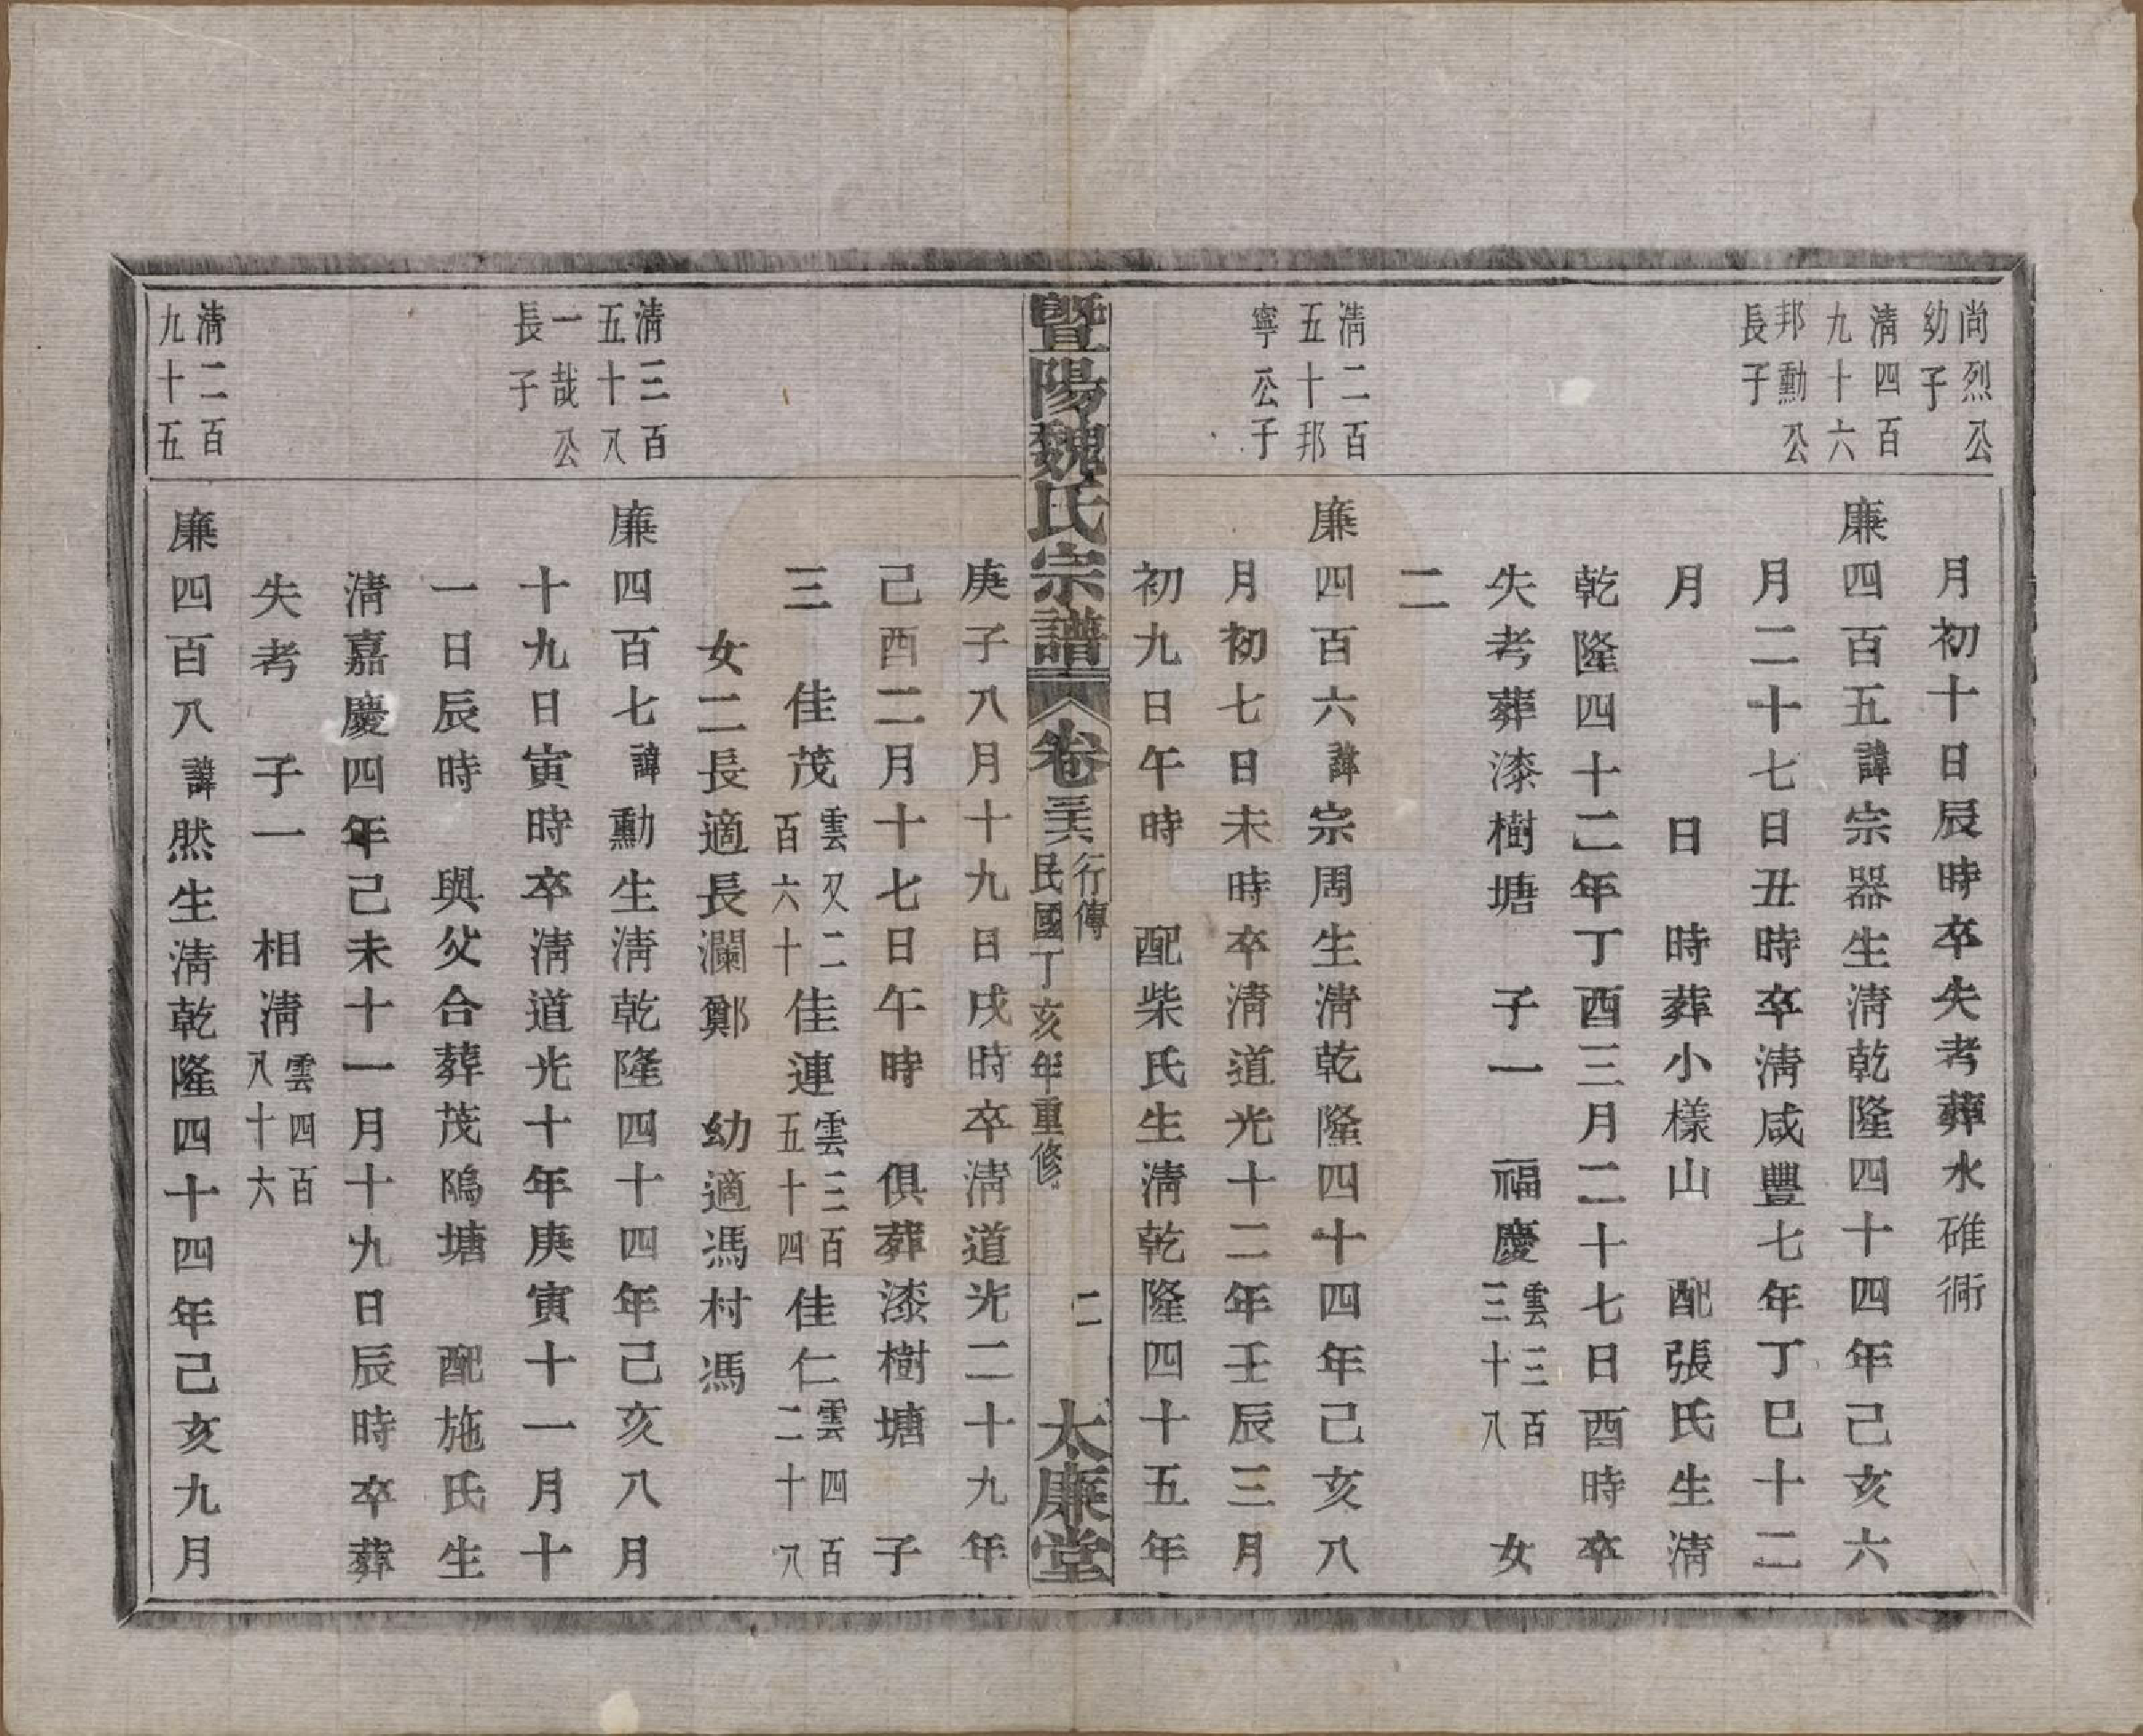 尚烈公
幼子
月初十日辰時卒失考葬水碓衕
清四百
九十六
邦勳公
長子
廉四百五諱宗器生清乾隆四十四年己亥六
月二十七日丑時卒清咸豐七年丁巳十二
月　日　時葬小樣山　配張氏生清
乾隆四十二年丁酉三月二十七日酉時卒
失考葬漆樹塘　子一　福慶雲三百三十八　女
二
清二百
五十邦
寧公子
廉四百六諱宗周生清乾隆四十四年己亥八
月初七日未時卒清道光十二年壬辰三月
初九日午時　配柴氏生清乾隆四十五年
暨陽魏氏宗譜　卷三六　行傳　民國丁亥年重修　二　太廉堂
庚子八月十九日戌時卒清道光二十九年
己酉二月十七日午時　俱葬漆樹塘　子
三　佳茂雲又二百六十　佳連雲三百五十四　佳仁雲四百二十八
女二長適長瀾鄭　幼適馮村馮
清三百
五十八
一哉公
長子
廉四百七諱勳生清乾隆四十四年己亥八月
十九日寅時卒清道光十年庚寅十一月十
一日辰時　與父合葬茂隖塘　配施氏生
清嘉慶四年己未十一月十九日辰時卒葬
失考　子一　相清雲四百八十六
清二百
九十五
廉四百八諱然生清乾隆四十四年己亥九月